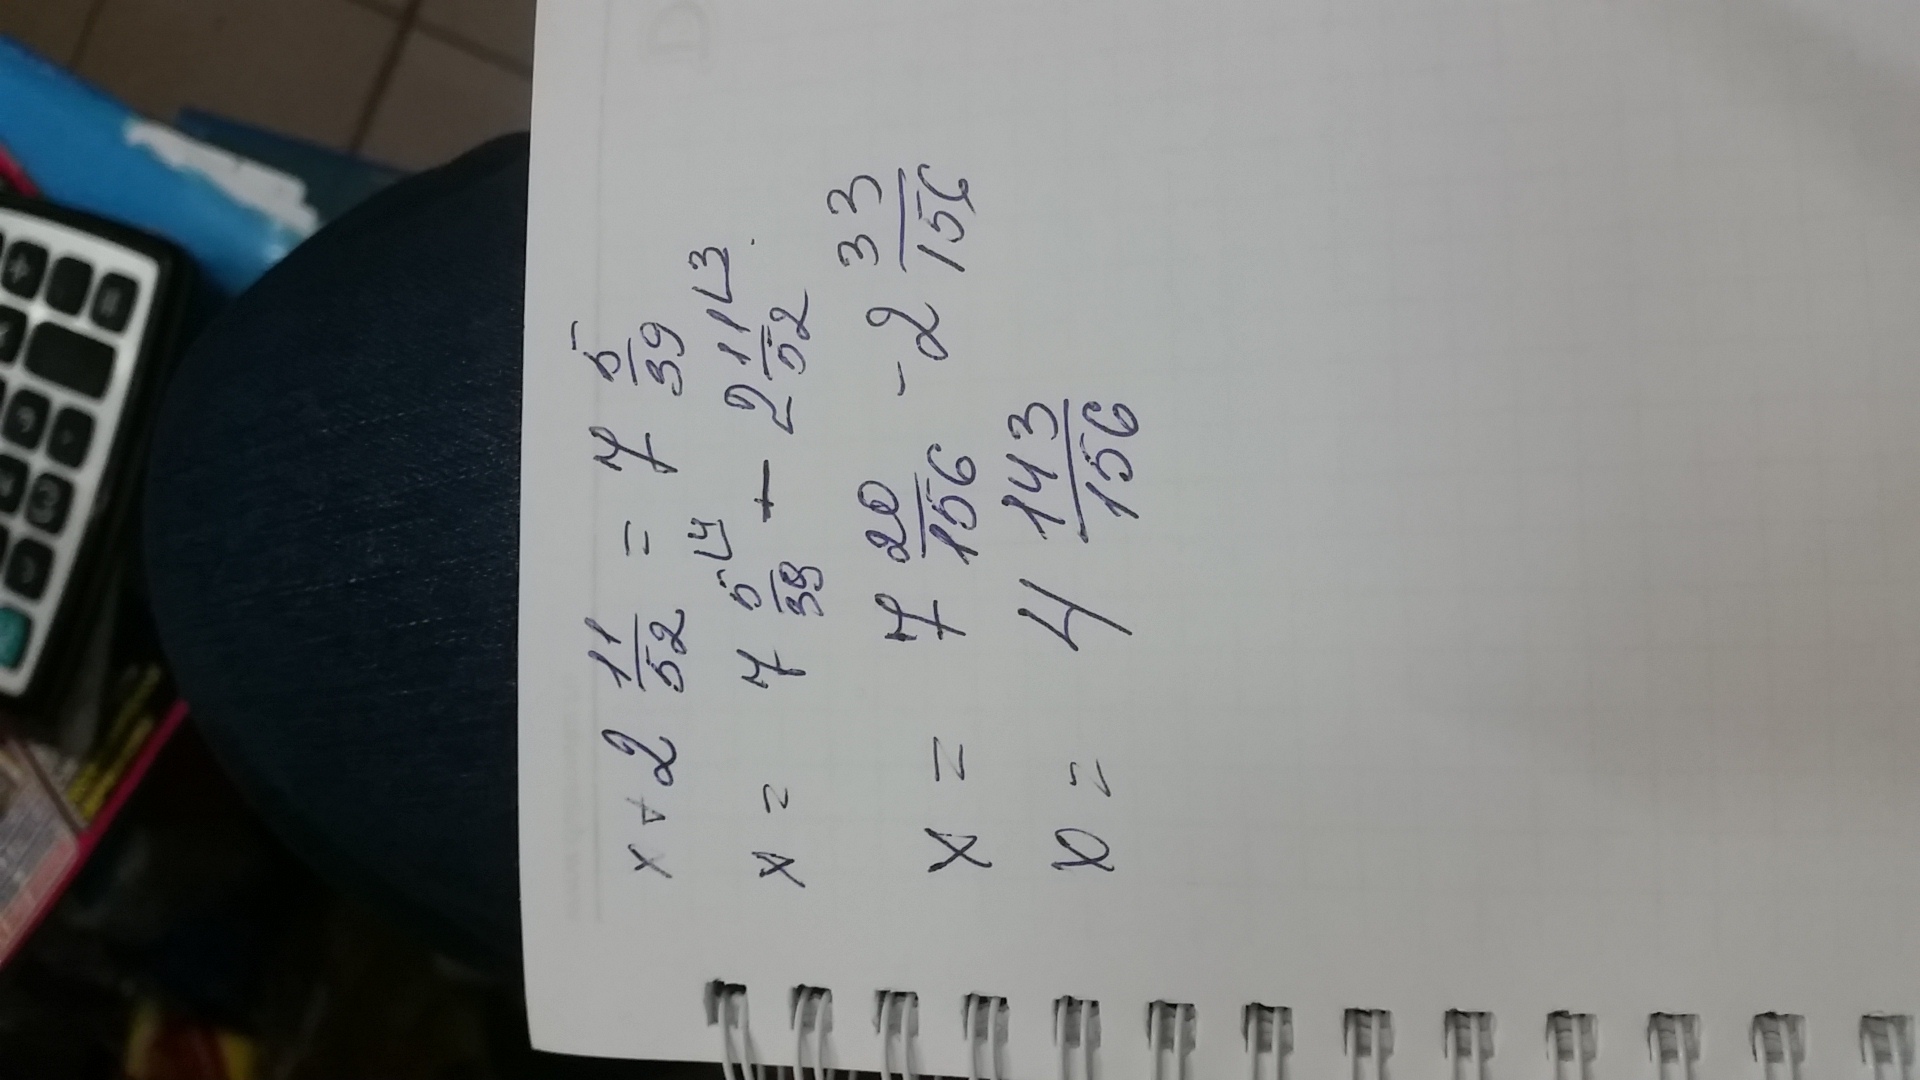 x + 2 11/52 = 7 5/39
x = 7 5/39 ⌊4 - 2 11/52 ⌊3
x = 7 20/156 - 2 33/156
x = 4 143/156